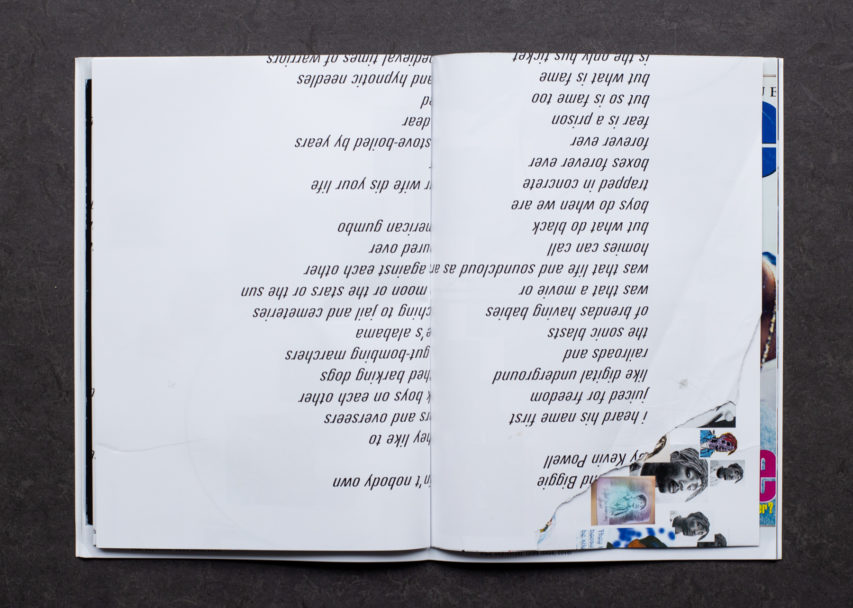 nd Biggie
y Kevin Powell
i heard his name first
juiced for freedom
like digital underground
railroads and
the sonic blasts
of brendas having babies
was that a movie or
was that life and soundcloud as
homies can call
but what do black
boys do when we are
trapped in concrete
boxes forever ever
forever ever
fear is a prison
but so is fame too
but what is fame
is the only bus ticket
n't nobody own
hey like to
rs and overseers
k boys on each other
hed barking dogs
gut-bombing marchers
e's alabama
ching to jail and cemeteries
moon or the stars or the sun
ar against each other
ured over
merican gumbo
r wife dis your life
stove-boiled by years
dear
ed
and hypnotic needles
nedieval times of warriors